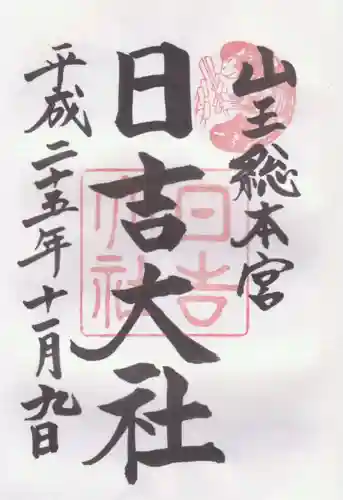 山王総本宮
日吉大社
平成二十五年十一月九日
日吉
大社